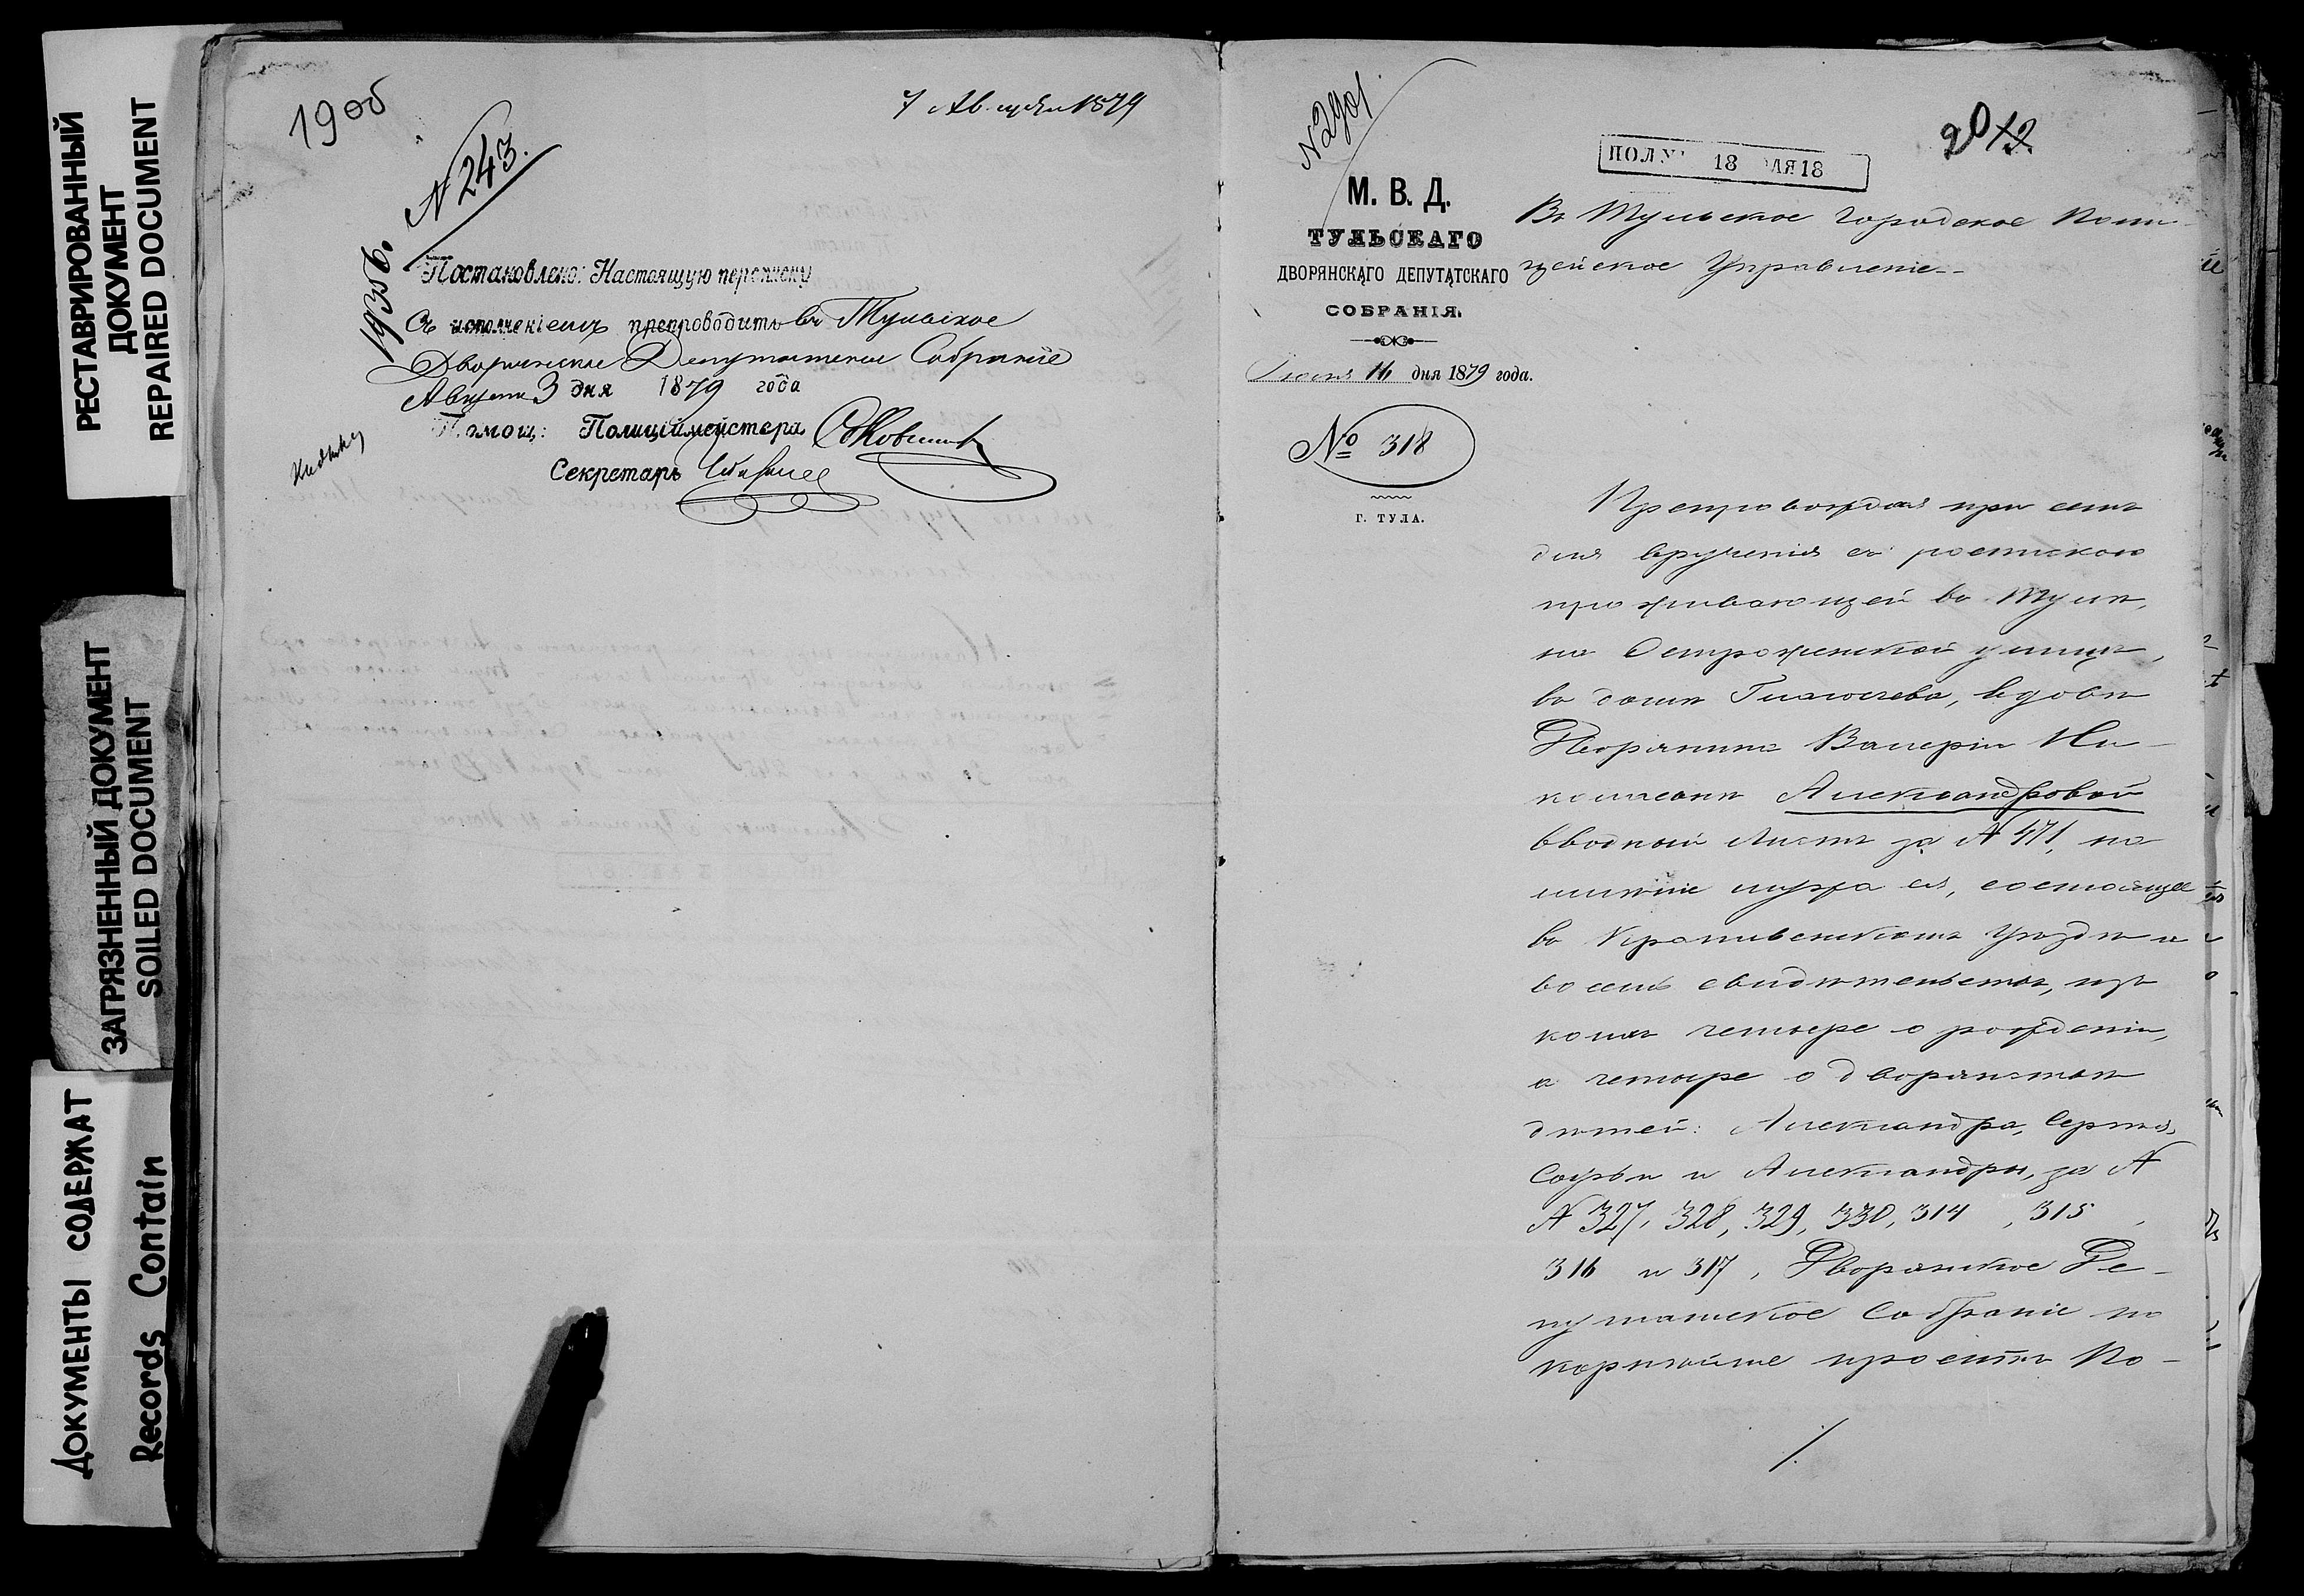 РЕСТАВРИРОВАННЫЙ
ДОКУМЕНТ
REPAIRED DOCUMENT
ЗАГРЯЗНЕННЫЙ ДОКУМЕНТ
SOILED DOCUMENT
ДОКУМЕНТЫ СОДЕРЖАТ
Records Contain
19 об
7 Августа 1879
N 243.
19356.
Постановлено: Настоящую переписку
Съ исполненіемъ препроводить въ Тульское
Дворянское Депутатское Собраніе
Августа 3 дня 1879 года
Помощ: Полиціймейстера
Секретарь
N 2901
20
ПОЛУ 18 ЛЯ 18
М. В. Д.
ТУЛЬСКАГО
ДВОРЯНСКАГО ДЕПУТАТСКАГО
СОБРАНІЯ.
16 дня 1879 года.
№ 318
Г. ТУЛА.
Въ Тульское Городское Поли-
цейское Управленіе
Препровождая при семъ
для врученія съ роспискою
проживающей въ Тулѣ,
на Остроженской улицѣ,
въ домѣ вдовѣ
Дворянина Валеріи Ни-
колаевнѣ Александровой
вводный листъ за N 471, на
имѣніе мужа ея, состоящее
въ Крапивенскомъ Уѣздѣ и
восемь свидѣтельствъ, изъ
коихъ четыре о рожденіи,
а четыре о дворянствѣ
дѣтей: Александра, Сергѣя,
Софьи и Александры, за N
N 327, 328, 329, 330, 314, 315,
316 и 317, Дворянское Де-
путатское Собраніе по
корнѣйше проситъ По-